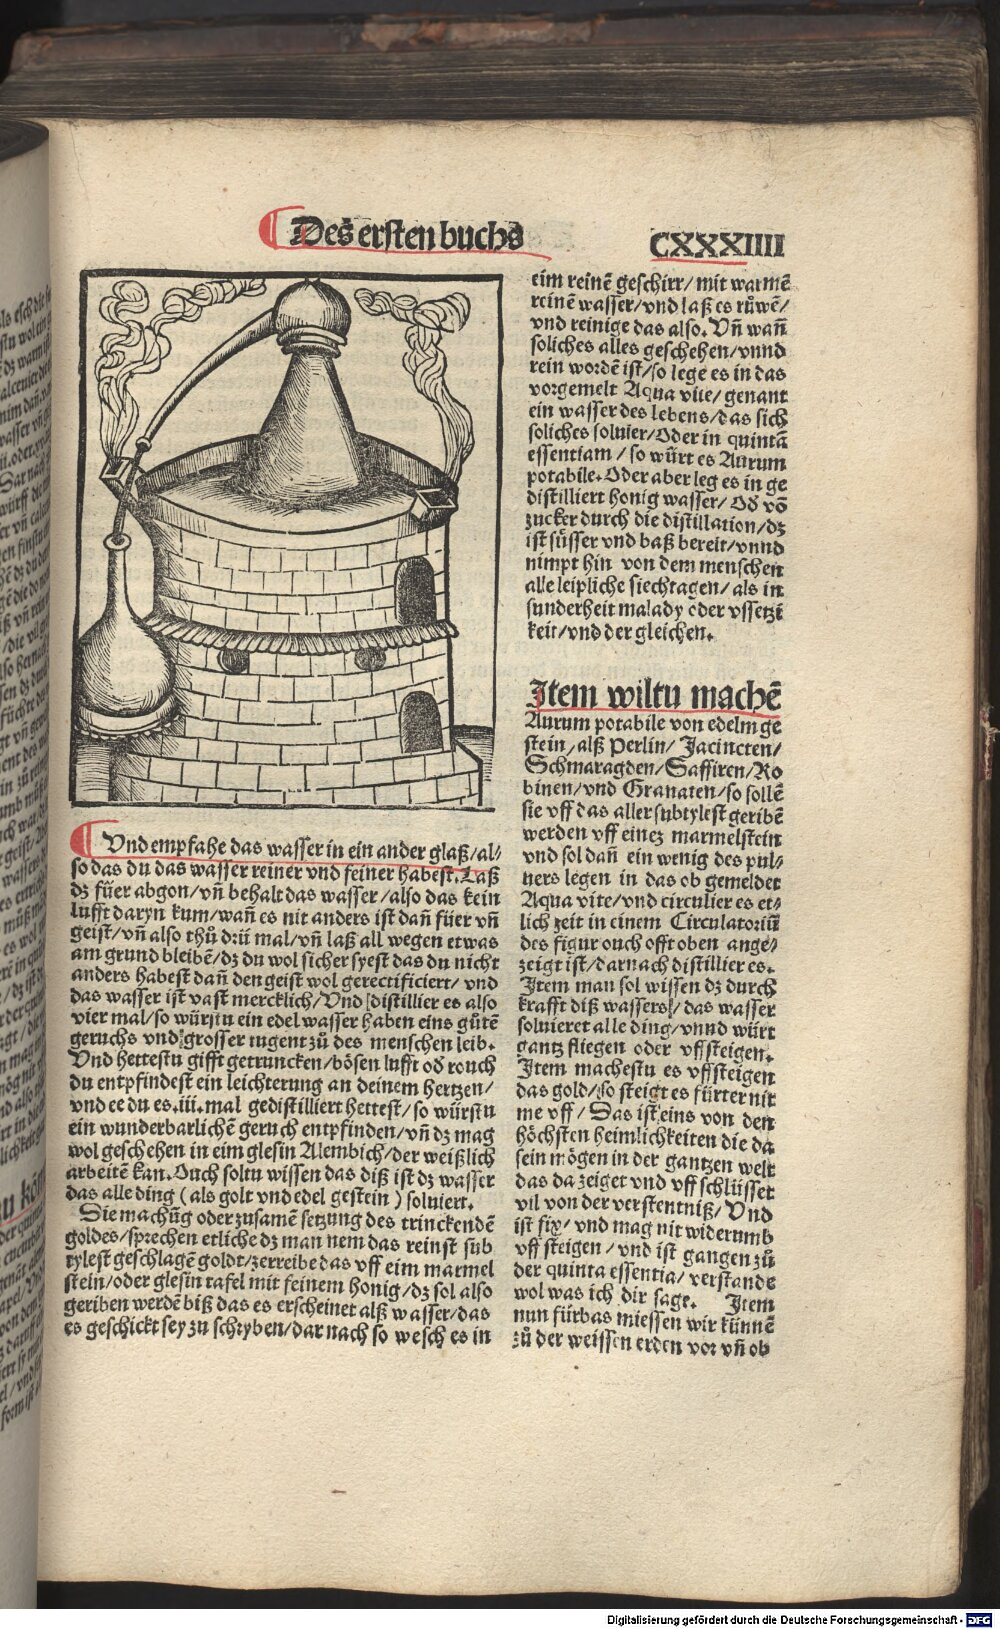 Des ersten buchs
CXXXIIII
Und empfahe das wasser in ein ander glaß/al⸗
so das du das wasser reiner vnd feiner habest. Laß
dz füer abgon/vñ behalt das wasser/also das kein
lufft daryn kum/wañ es nit anders ist dañ füer vñ
geist/vñ also thů drü mal/vñ laß all wegen etwas
am grund bleibē/dz du wol sicher syest das du nicht
anders habest dañ den geist wol gerectificiert/vnd
das wasser ist vast mercklich/Und distillier es also
vier mal/so würstu ein edel wasser haben eins gůtē
geruchs vnd grosser tugent zů des menschen leib.
Und hettestu gifft getruncken/bösen lufft oð rouch
du entpfindest ein leichterung an deinem hertzen/
vnd ee du es.iii.mal gedistilliert hettest/so würstu
ein wunderbarlichē geruch entpfinden/vñ dz mag
wol geschehen in eim glesin Alembich/der weißlich
arbeitē kan. Ouch soltu wissen das diß ist dz wasser
das alle ding (als golt vnd edel gestein) soluiert.
Die machūg oder zusamē setzung des trinckendē
goldes/sprechen etliche dz man nem das reinst sub
tylest geschlagē goldt/zerreibe das vff eim marmel
stein/oder glesin tafel mit feinem honig/dz sol also
geriben werdē biß das es erscheinet alß wasser/das
es geschickt sey zu schryben/dar nach so wesch es in
eim reinē geschirr/mit warmē
reinē wasser/vnd laß es růwē/
vnd reinige das also. Vñ wañ
soliches alles geschehen/vnnd
rein wordē ist/so lege es in das
vorgemelt Aqua vite/genant
ein wasser des lebens/das sich
soliches soluier/Oder in quintā
essentiam/so würt es Aurum
potabile. Oder aber leg es in ge
distilliert honig wasser/Oð vō
zucker durch die distillation/dz
ist süsser vnd baß bereit/vnnd
nimpt hin von dem menschen
alle leipliche siechtagen/als in
sunderheit malady oder vssetzi
keit/vnd der gleichen.
Item wiltu machē
Aurum potabile von edelm ge
stein/alß Perlin/Jacincten/
Schmaragden/Saffiren/Ro
binen/vnd Granaten/so sollē
sie vff das aller subtylest geribē
werden vff einez marmelstein
vnd sol dañ ein wenig des pul⸗
uers legen in das ob gemeldet
Aqua vite/vnd circulier es et⸗
lich zeit in einem Circulatoriū
des figur ouch offt oben ange⸗
zeigt ist/darnach distillier es.
Item man sol wissen dz durch
krafft diß wassers/das wasser
soluieret alle ding/vnnd würt
gantz fliegen oder vffsteigen.
Item machestu es vffsteigen
das gold/so steigt es fürter nit
me vff/Das ist eins von den
höchsten heimlichkeiten die da
sein mögen in der gantzen welt
das da zeiget vnd vff schlüsset
vil von der verstentniß/Und
ist fix/vnd mag nit widerumb
vff steigen/vnd ist gangen zů
der quinta essentia/verstande
wol was ich dir sage. Item
nun fürbas miessen wir künnē
zů der weissen erden vor vñ ob
Digitalisierung gefördert durch die Deutsche Forschungsgemeinschaft - DFG